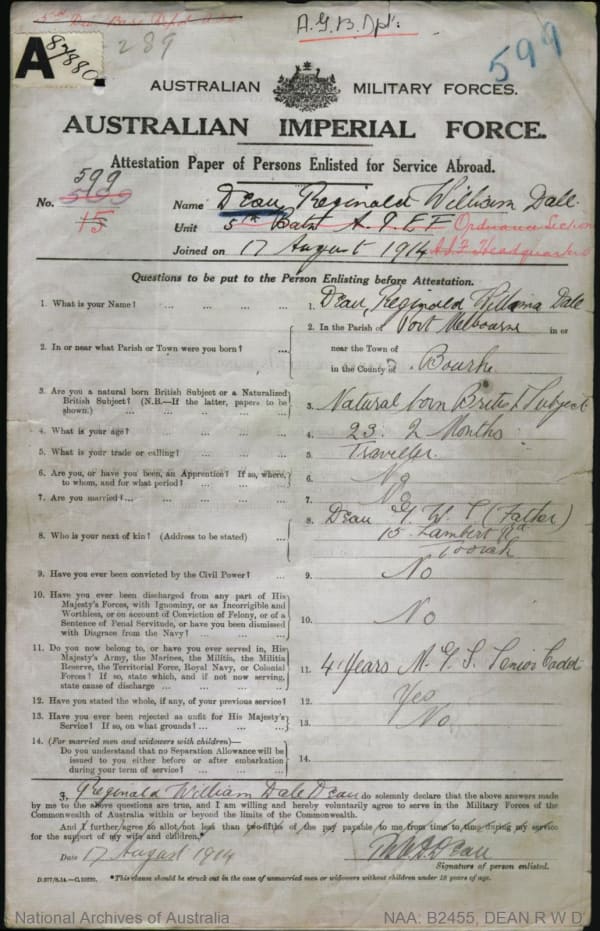 A.G.B. Dpt.
599
A 87/880
289
AUSTRALIAN MILITARY FORCES.
AUSTRALIAN IMPERIAL FORCE.
Attestation Paper of Persons Enlisted for Service Abroad.
599
No. 599 Name Dean Reginald William Dale
15 Unit 5th Batn A.I.E.F Ordnance Section
Joined on 17 August 1914 A.I.F Headquarters
Questions to be put to the Person Enlisting before Attestation.
1. What is your Name? ... ... ... ... 1. Dean, Reginald William Dale
2. In or near what Parish or Town were you born? ... 2. In the Parish of Port Melbourne in or
near the Town of
in the County of Bourke
3. Are you a natural born British Subject or a Naturalized
British Subject? (N.B.—If the latter, papers to be
shown.) ... ... ... ... 3. Natural born British Subject
4. What is your age? ... ... ... 4. 23. 2 Months
5. What is your trade or calling? ... ... ... 5. Traveller.
6. Are you, or have you been, an Apprentice? If so, where,
to whom, and for what period? ... ... 6. No
7. Are you married? ... ... ... ... 7. No
8. Who is your next of kin? (Address to be stated) ... 8. Dean G. W. S (Father)
15 Lambert Rd
Toorak
9. Have you ever been convicted by the Civil Power? ... 9. No
10. Have you ever been discharged from any part of His
Majesty's Forces, with Ignominy, or as Incorrigible and
Worthless, or on account of Conviction of Felony, or of a
Sentence of Penal Servitude, or have you been dismissed
with Disgrace from the Navy? ... ... ... 10. No
11. Do you now belong to, or have you ever served in, His
Majesty's Army, the Marines, the Militia, the Militia
Reserve, the Territorial Force, Royal Navy, or Colonial
Forces? If so, state which, and if not now serving,
state cause of discharge ... ... ... 11. 4 Years M. G. S. Senior Cadet
12. Have you stated the whole, if any, of your previous service? 12. Yes
13. Have you ever been rejected as unfit for His Majesty's
Service? If so, on what grounds? ... ... 13. No
14. (For married men and widowers with children)—
Do you understand that no Separation Allowance will be
issued to you either before or after embarkation
during your term of service? ... ... 14.
I, Reginald William Dale Dean do solemnly declare that the above answers made
by me to the above questions are true, and I am willing and hereby voluntarily agree to serve in the Military Forces of the
Commonwealth of Australia within or beyond the limits of the Commonwealth.
And I further agree to allot not less than two-fifths of the pay payable to me from time to time during my service
for the support of my wife and children.*
Date 17 August 1914 RWD.Dean
Signature of person enlisted.
*This clause should be struck out in the case of unmarried men or widowers without children under 18 years of age.
National Archives of Australia NAA: B2455, DEAN R W D